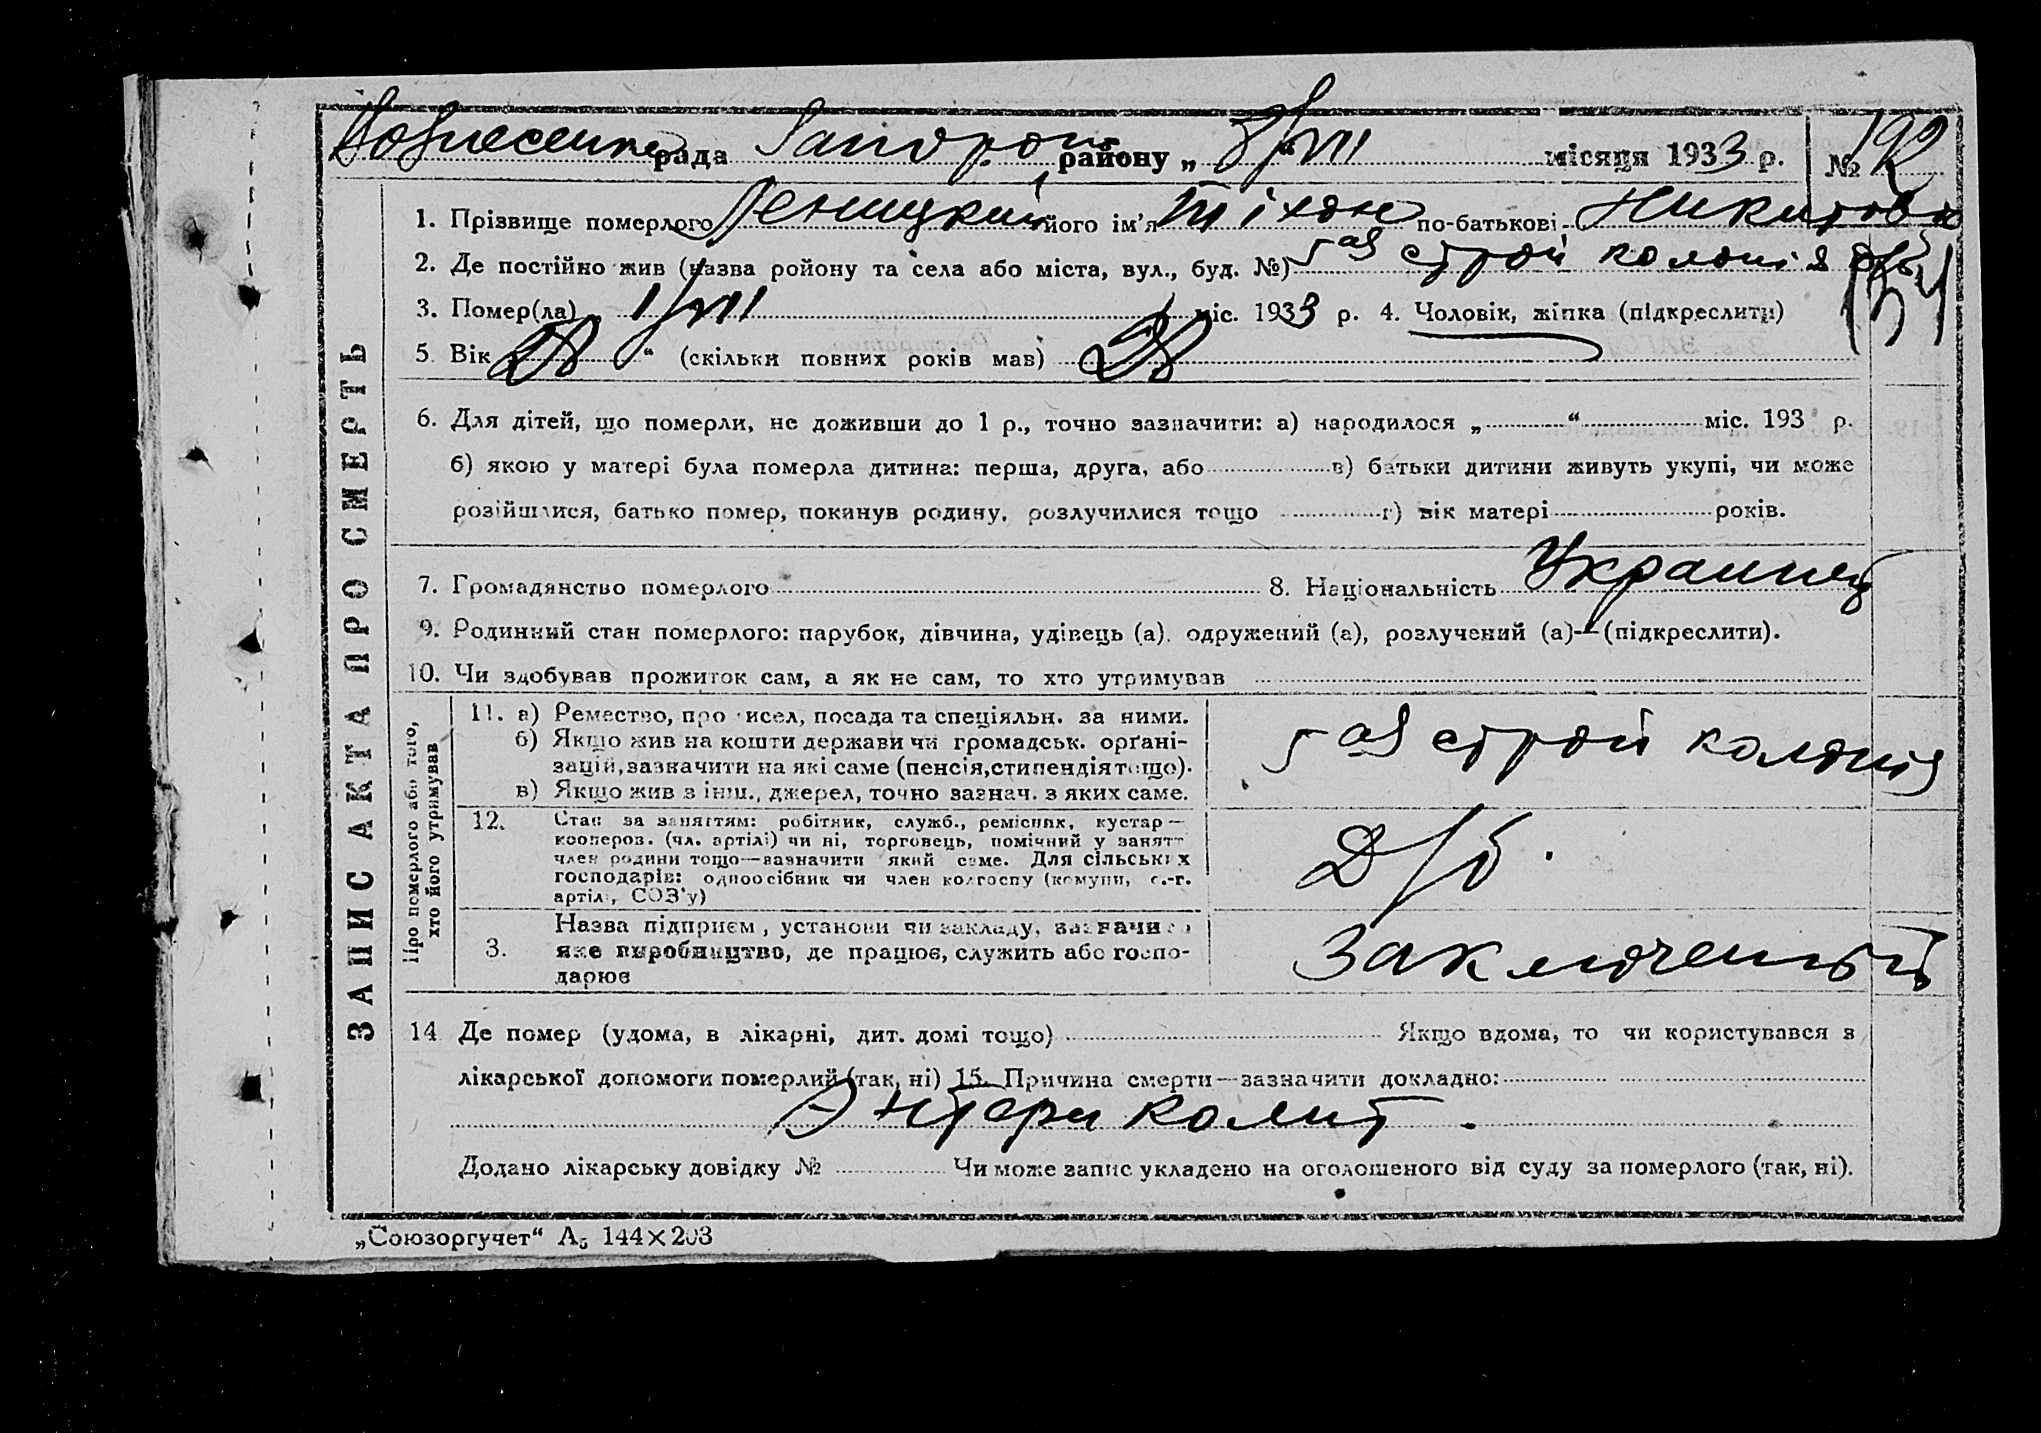 Вознесенка рада Запорож району „ 3/VII “ місяця 1933 р. № 192
1. Прізвище померлого Леницкий його ім'я Тіхон по-батькові Никитов
2. Де постійно жив (назва району та села або міста, вул., буд. №) 5ая строй колонія
3. Помер(ла) 1/VII міс. 1933 р. 4. Чоловік, жінка (підкреслити)
5. Вік 28 “ (скільки повних років мав) 28
6. Для дітей, що померли, не доживши до 1 р., точно зазначити: а) народилося „ “ міс. 193 р.
б) якою у матері була померла дитина: перша, друга, або в) батьки дитини живуть укупі, чи може
розійшлися, батько помер, покинув родину, розлучилися тощо г) вік матері років.
7. Громадянство померлого 8. Національність Украинец
9. Родинний стан померлого: парубок, дівчина, удівець (а). одружений (а), розлучений (а)—(підкреслити).
10. Чи здобував прожиток сам, а як не сам, то хто утримував
ЗАПИС АКТА ПРО СМЕРТЬ
Про померлого або того,
хто його утримував
11. а) Ремество, промисел, посада та спеціяльн. за ними.
б) Якщо жив на кошти держави чи громадськ. органі-
зацій, зазначити на які саме (пенсія, стипендія тощо).
в) Якщо жив з інш., джерел, точно зазнач. з яких саме.
5ая строй колония
12. Стан за заняттям: робітник, служб., ремісник, кустар—
коопероз. (чл. артілі) чи ні, торговець, помічний у занятт
член родини тощо—зазначити який саме. Для сільських
господарів: одноосібник чи член колгоспу (комуни, с.-г.
артілі, СОЗ'у)
Д/б.
3. Назва підприєм, установи чи закладу, зазначит
яке виробництво, де працює, служить або госпо-
дарює
Заключенный
14 Де помер (удома, в лікарні, дит. домі тощо) Якщо вдома, то чи користувався з
лікарської допомоги померлий (так, ні) 15. Причина смерти—зазначити докладно:
Энтери колит.
Додано лікарську довідку № Чи може запис укладено на оголошеного від суду за померлого (так, ні).
„Союзоргучет“ А5 144×203